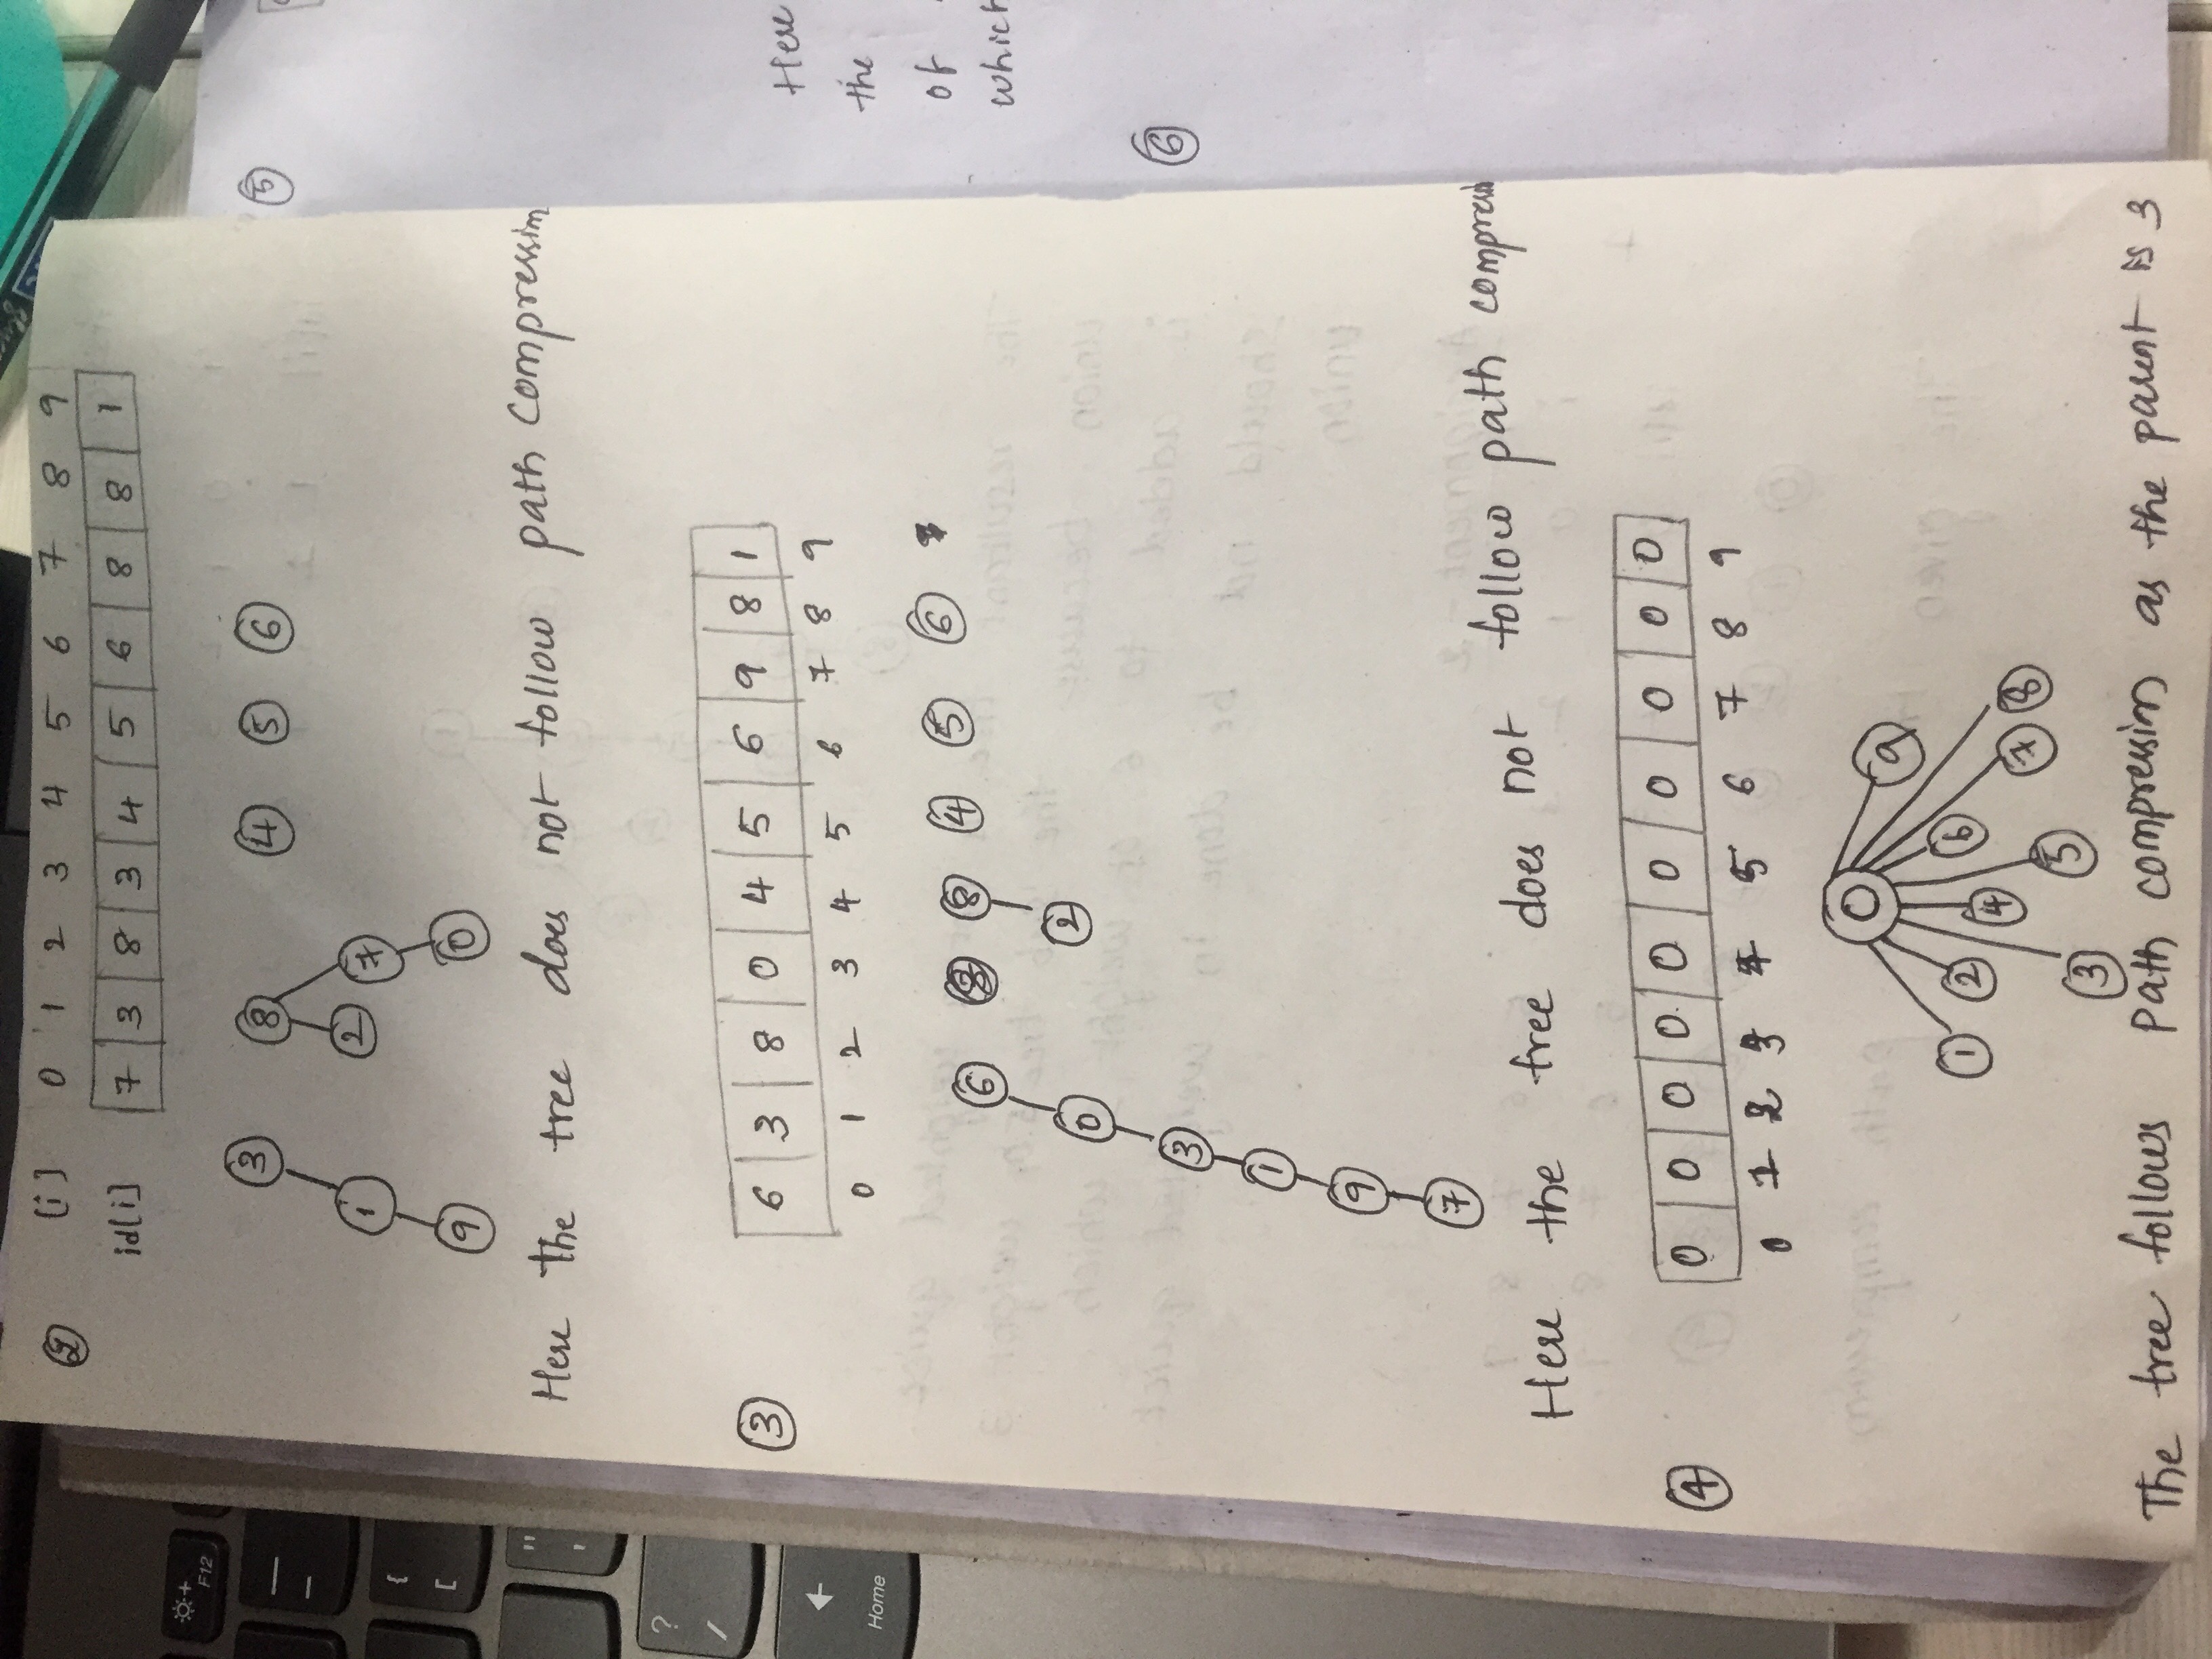 ② [i] 0 1 2 3 4 5 6 7 8 9
id[i] 7 3 8 3 4 5 6 8 8 1
3 8 4 5 6
1 2 7
9 0
Here the tree does not follow path compression
③ 6 3 8 0 4 5 6 9 8 1
0 1 2 3 4 5 6 7 8 9
6 8 4 5 6
0 2
3
1
9
7
Here the tree does not follow path
④ 0 0 0 0 0 0 0 0 0 0
0 1 2 3 4 5 6 7 8 9
0
9
1 2 4 6
7 8
3 5
The tree follows Path compression as the parent is 3
⑤
Here
the
of
which
⑥
F12
{
[
"
'
?
/
Home